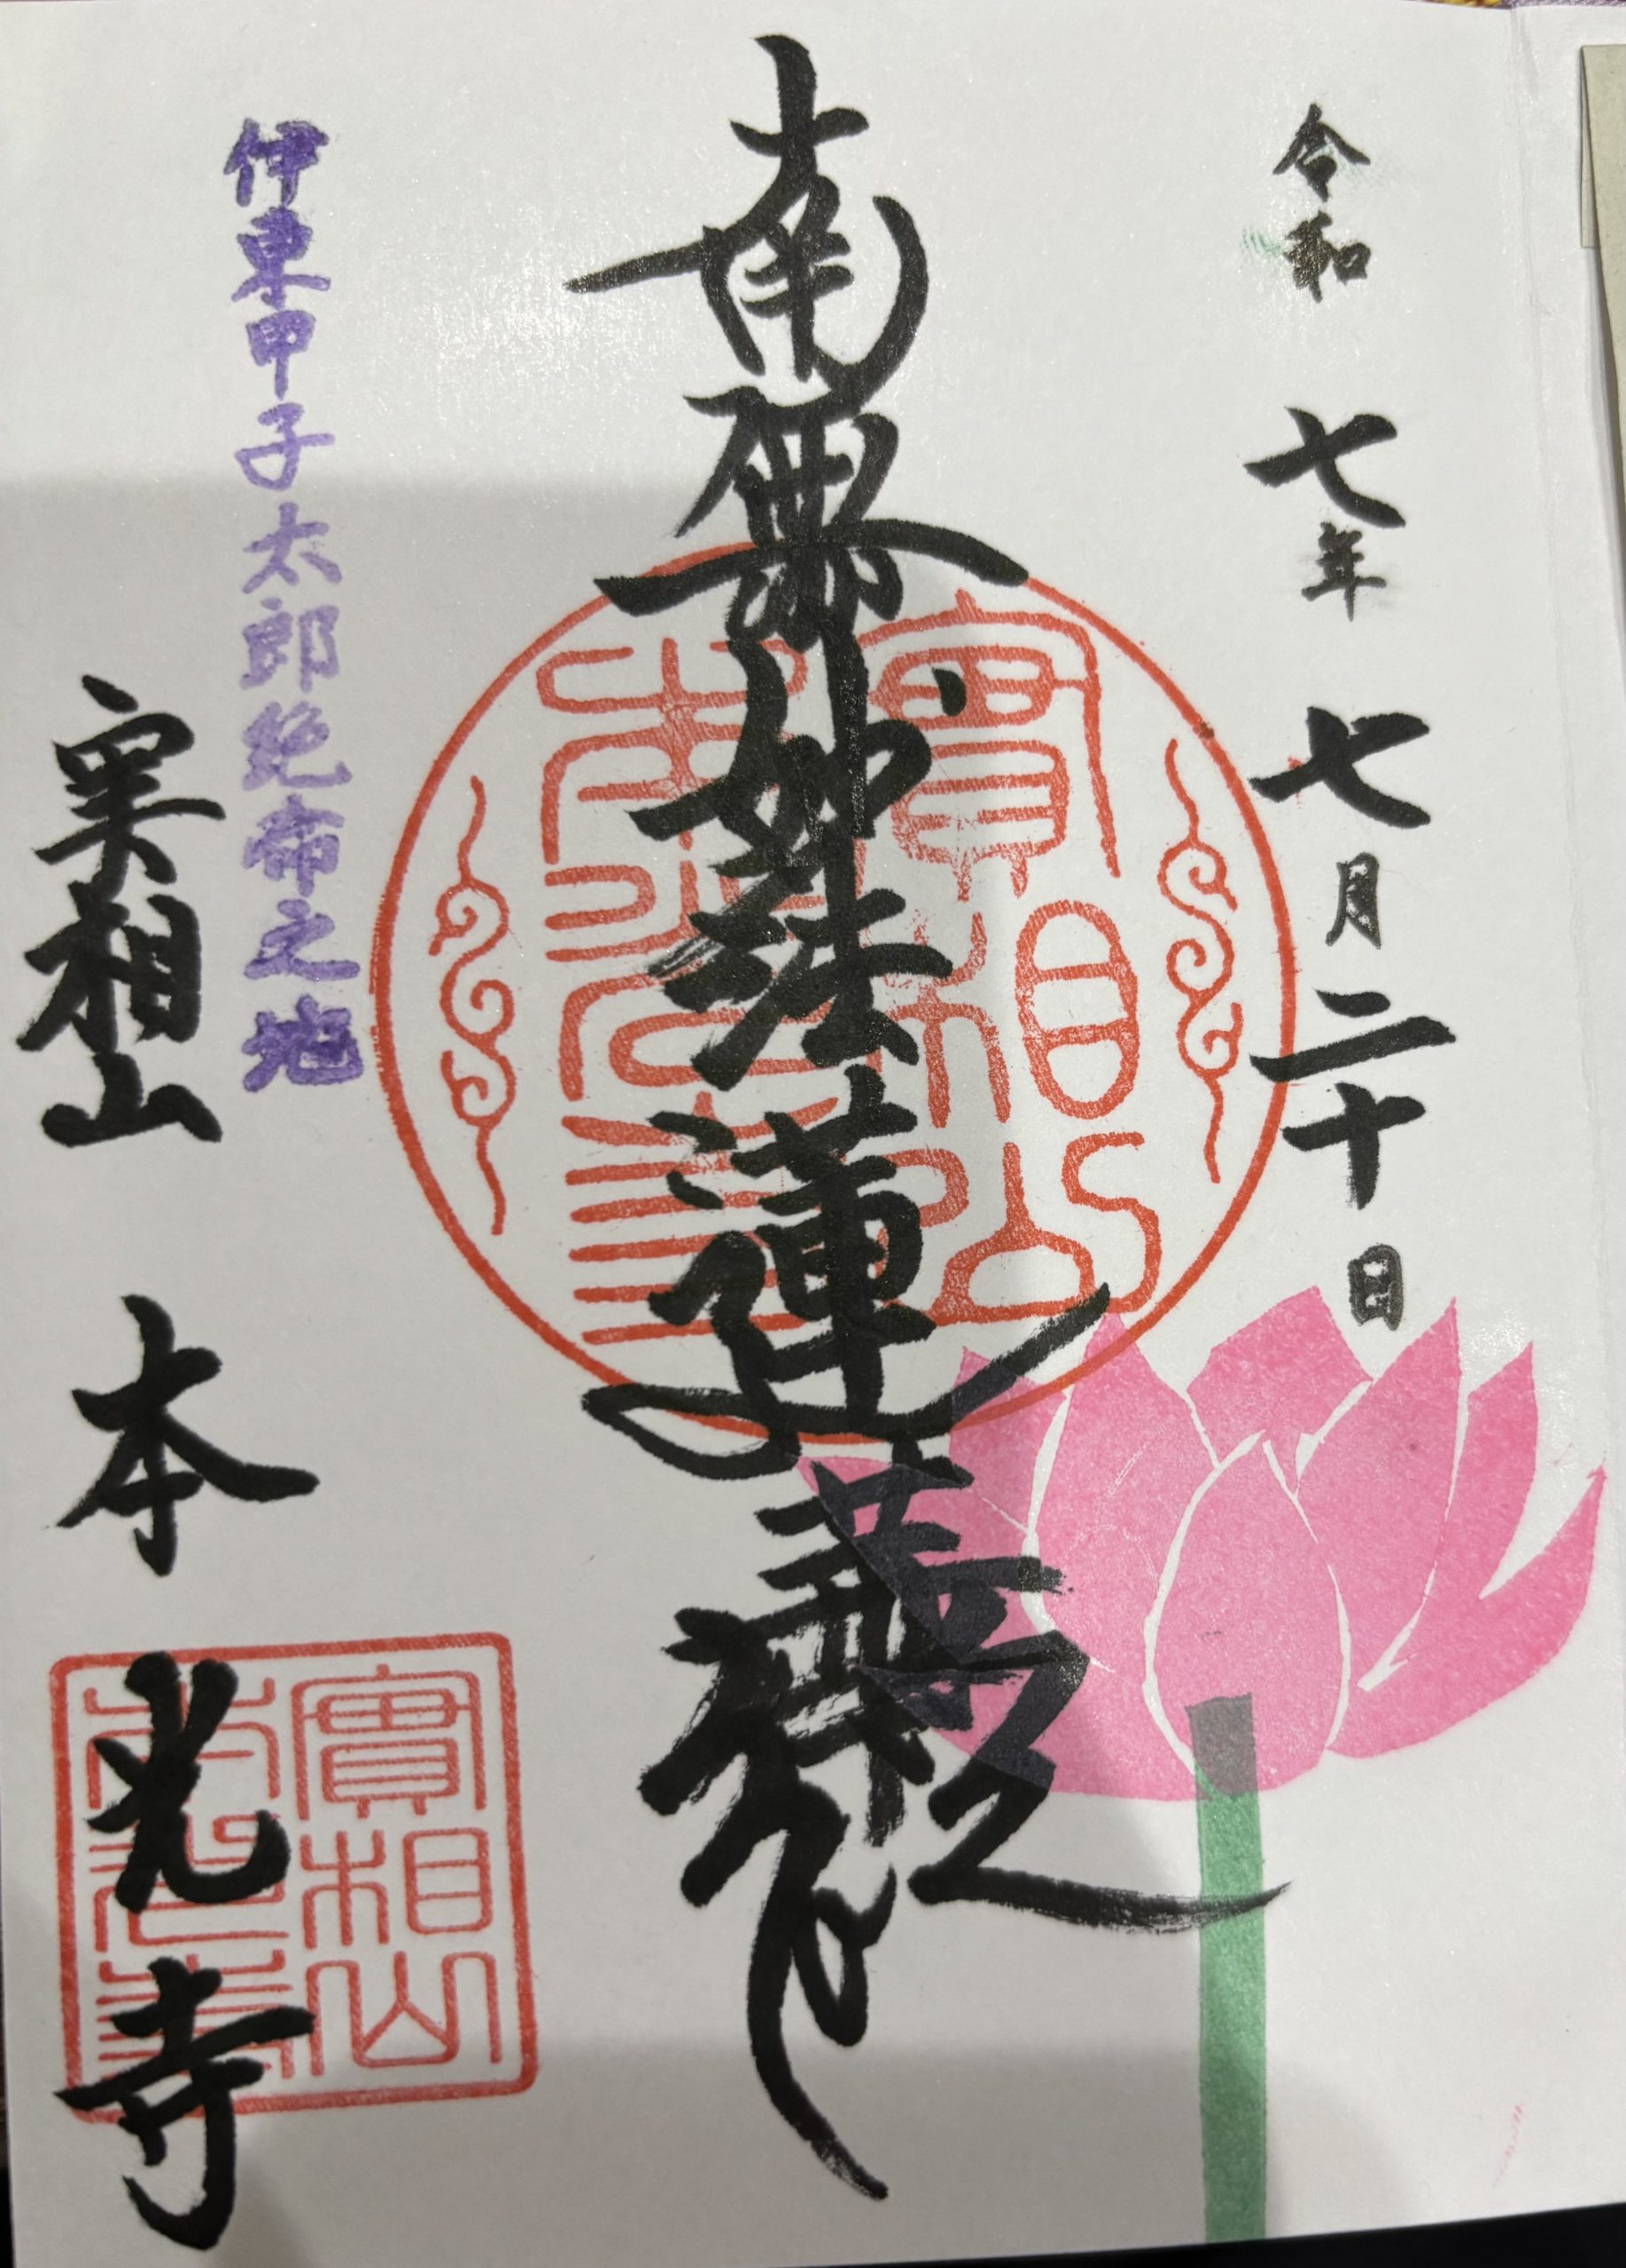 令和 七年 七月二十日
南無妙法蓮華経
實相山
本光寺
伊東甲子太郎絶命之地
実相山 本光寺
實相山
本光寺